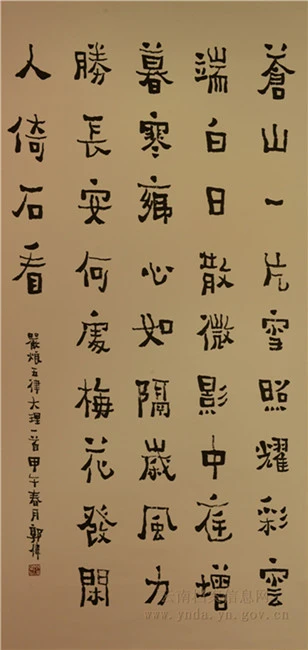 蒼山一片雪照耀彩雲
端白日散微影中庭增
暮寒心如隔歲風力
勝長安何處梅花發閑
人倚石看
五律大理一首甲午春月郭偉
云南档案信息网
www.ynda.yn.gov.cn